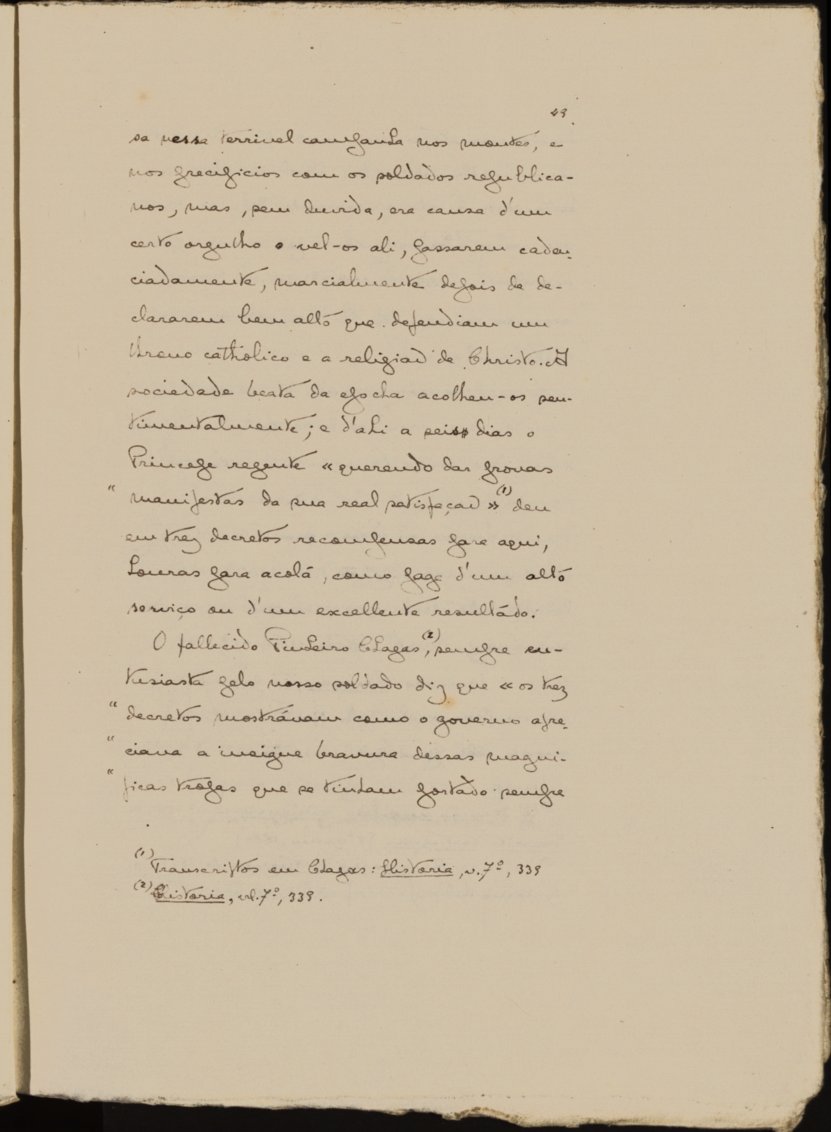 49
sa nessa terrivel campanha nos montes, e
nos precipicios com os soldados republica-
nos, mas, sem duvida, era causa d'um
certo orgulho o vel-os ali, passarem caden-
ciadamente, marcialmente depois de de-
clararem bem alto que defendiam um
throno catholico e a religiaõ de Christo. A
sociedade beata da epocha acolheu-os sen-
timentalmente; e d'ahi a seis dias o
Principe regente «querendo dar provas
" manifestas da sua real satisfaçaõ»(1) deu
em trez decretos recompensas para aqui,
louros para acolá, como paga d'um alto
serviço ou d'um excellente resultádo.
O fallecido Pinheiro Chagas(2), sempre en-
tusiasta pelo nosso soldado diz que «os trez
" decretos mostrávam como o governo apre-
" ciava a insigne bravura dessas magni-
" ficas tropas que se tinham portàdo sempre
(1) Transcriptos em Chagas: Historia, v. 7º, 339
(2) Historia, vol. 7º, 339.